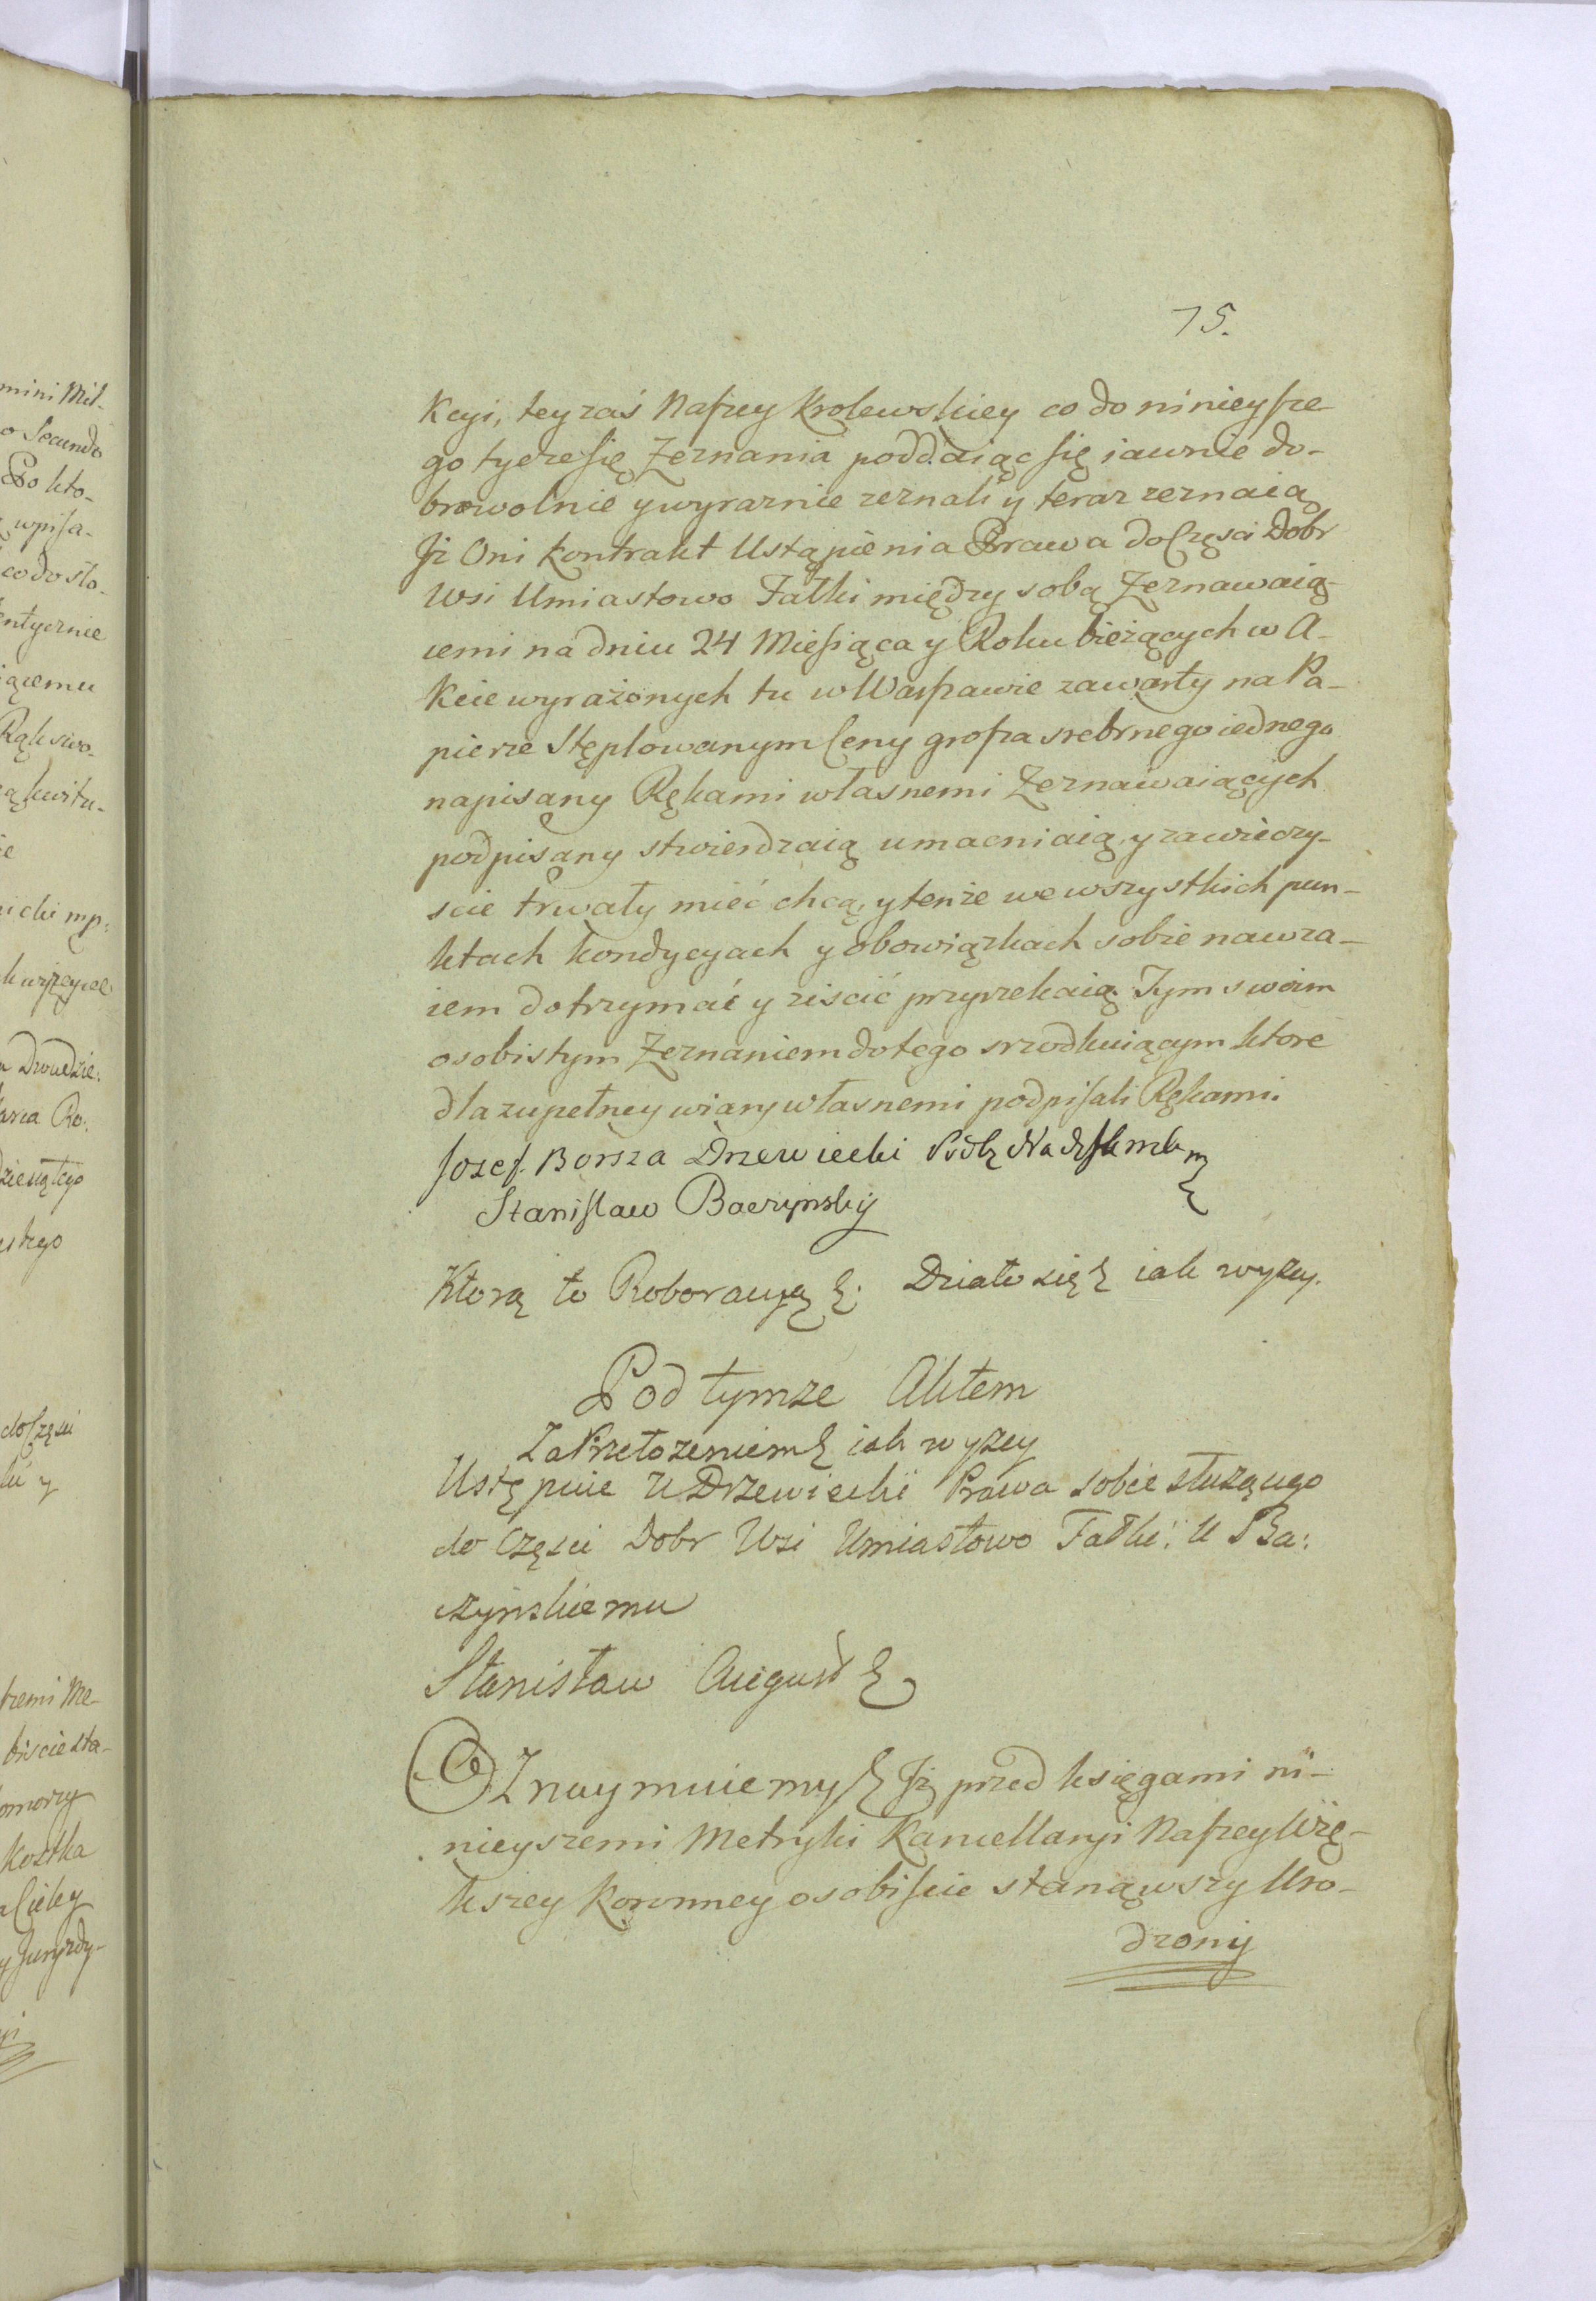 75.
Kcyi, tey zaś Naszey Krolewskiey co do ninieysze-
go tycze się Zeznania poddaiąc się iawnie do-
browolnie y wyraznie zeznali y teraz zeznaią
Jż Oni Kontrakt Ustąpienia Prawa do Części Dobr
Wsi Umiastowo Fałki między sobą Zeznawaią-
cemi na dniu 24 Miesiąca y Roku bieżących w A-
kcie wyrażonych tu w Warszawie zawarty na Pa-
pierze Stęplowanym Ceny grosza srebrnego iednego
napisany Rękami własnemi Zeznawaiących
podpisany stwierdzaią umacniaią, y zawieczy-
scie trwały mieć chcą, y tenże we wszystkich pun-
ktach kondycyach y obowiązkach sobie nawza-
iem dotrzymać y ziscić przyrzekaią. Tym swoim
osobistym Zeznaniem do tego srzodkuiącym ktore
dla zupełney wiary własnemi podpisali Rękami.
Jozef Borsza Drzewiecki
Stanisław Baczynsky
Ktorą to Roboracyą &. Działo się & iak wyzey.
Pod tymze Aktem
Za Przełozeniem & iak wyzey
Ustępuie U Drzewiecki Prawa sobie słuzącego
do Częsci Dobr Wsi Umiastowo Fałki: U Ba:
czynskiemu
Stanisław August &
OZnaymuiemy & Jż przed księgami ni-
nieyszemi Metryki Kancellaryi Naszey Wię-
kszey Koronney osobiscie stanąwszy Uro-
dzony
mini Mil-
o Secundo
Po kto-
wpisa-
co do sło-
entycznie
iącemu
Rąk swo-
ą kwitu-
ie
nicki mp:
Dwudzie:
Ro:
dziesiątego
skiego
do Częsci
y
szemi Me-
biscie sta-
omorzy
Kostka
Cieley
y Juryzdy-